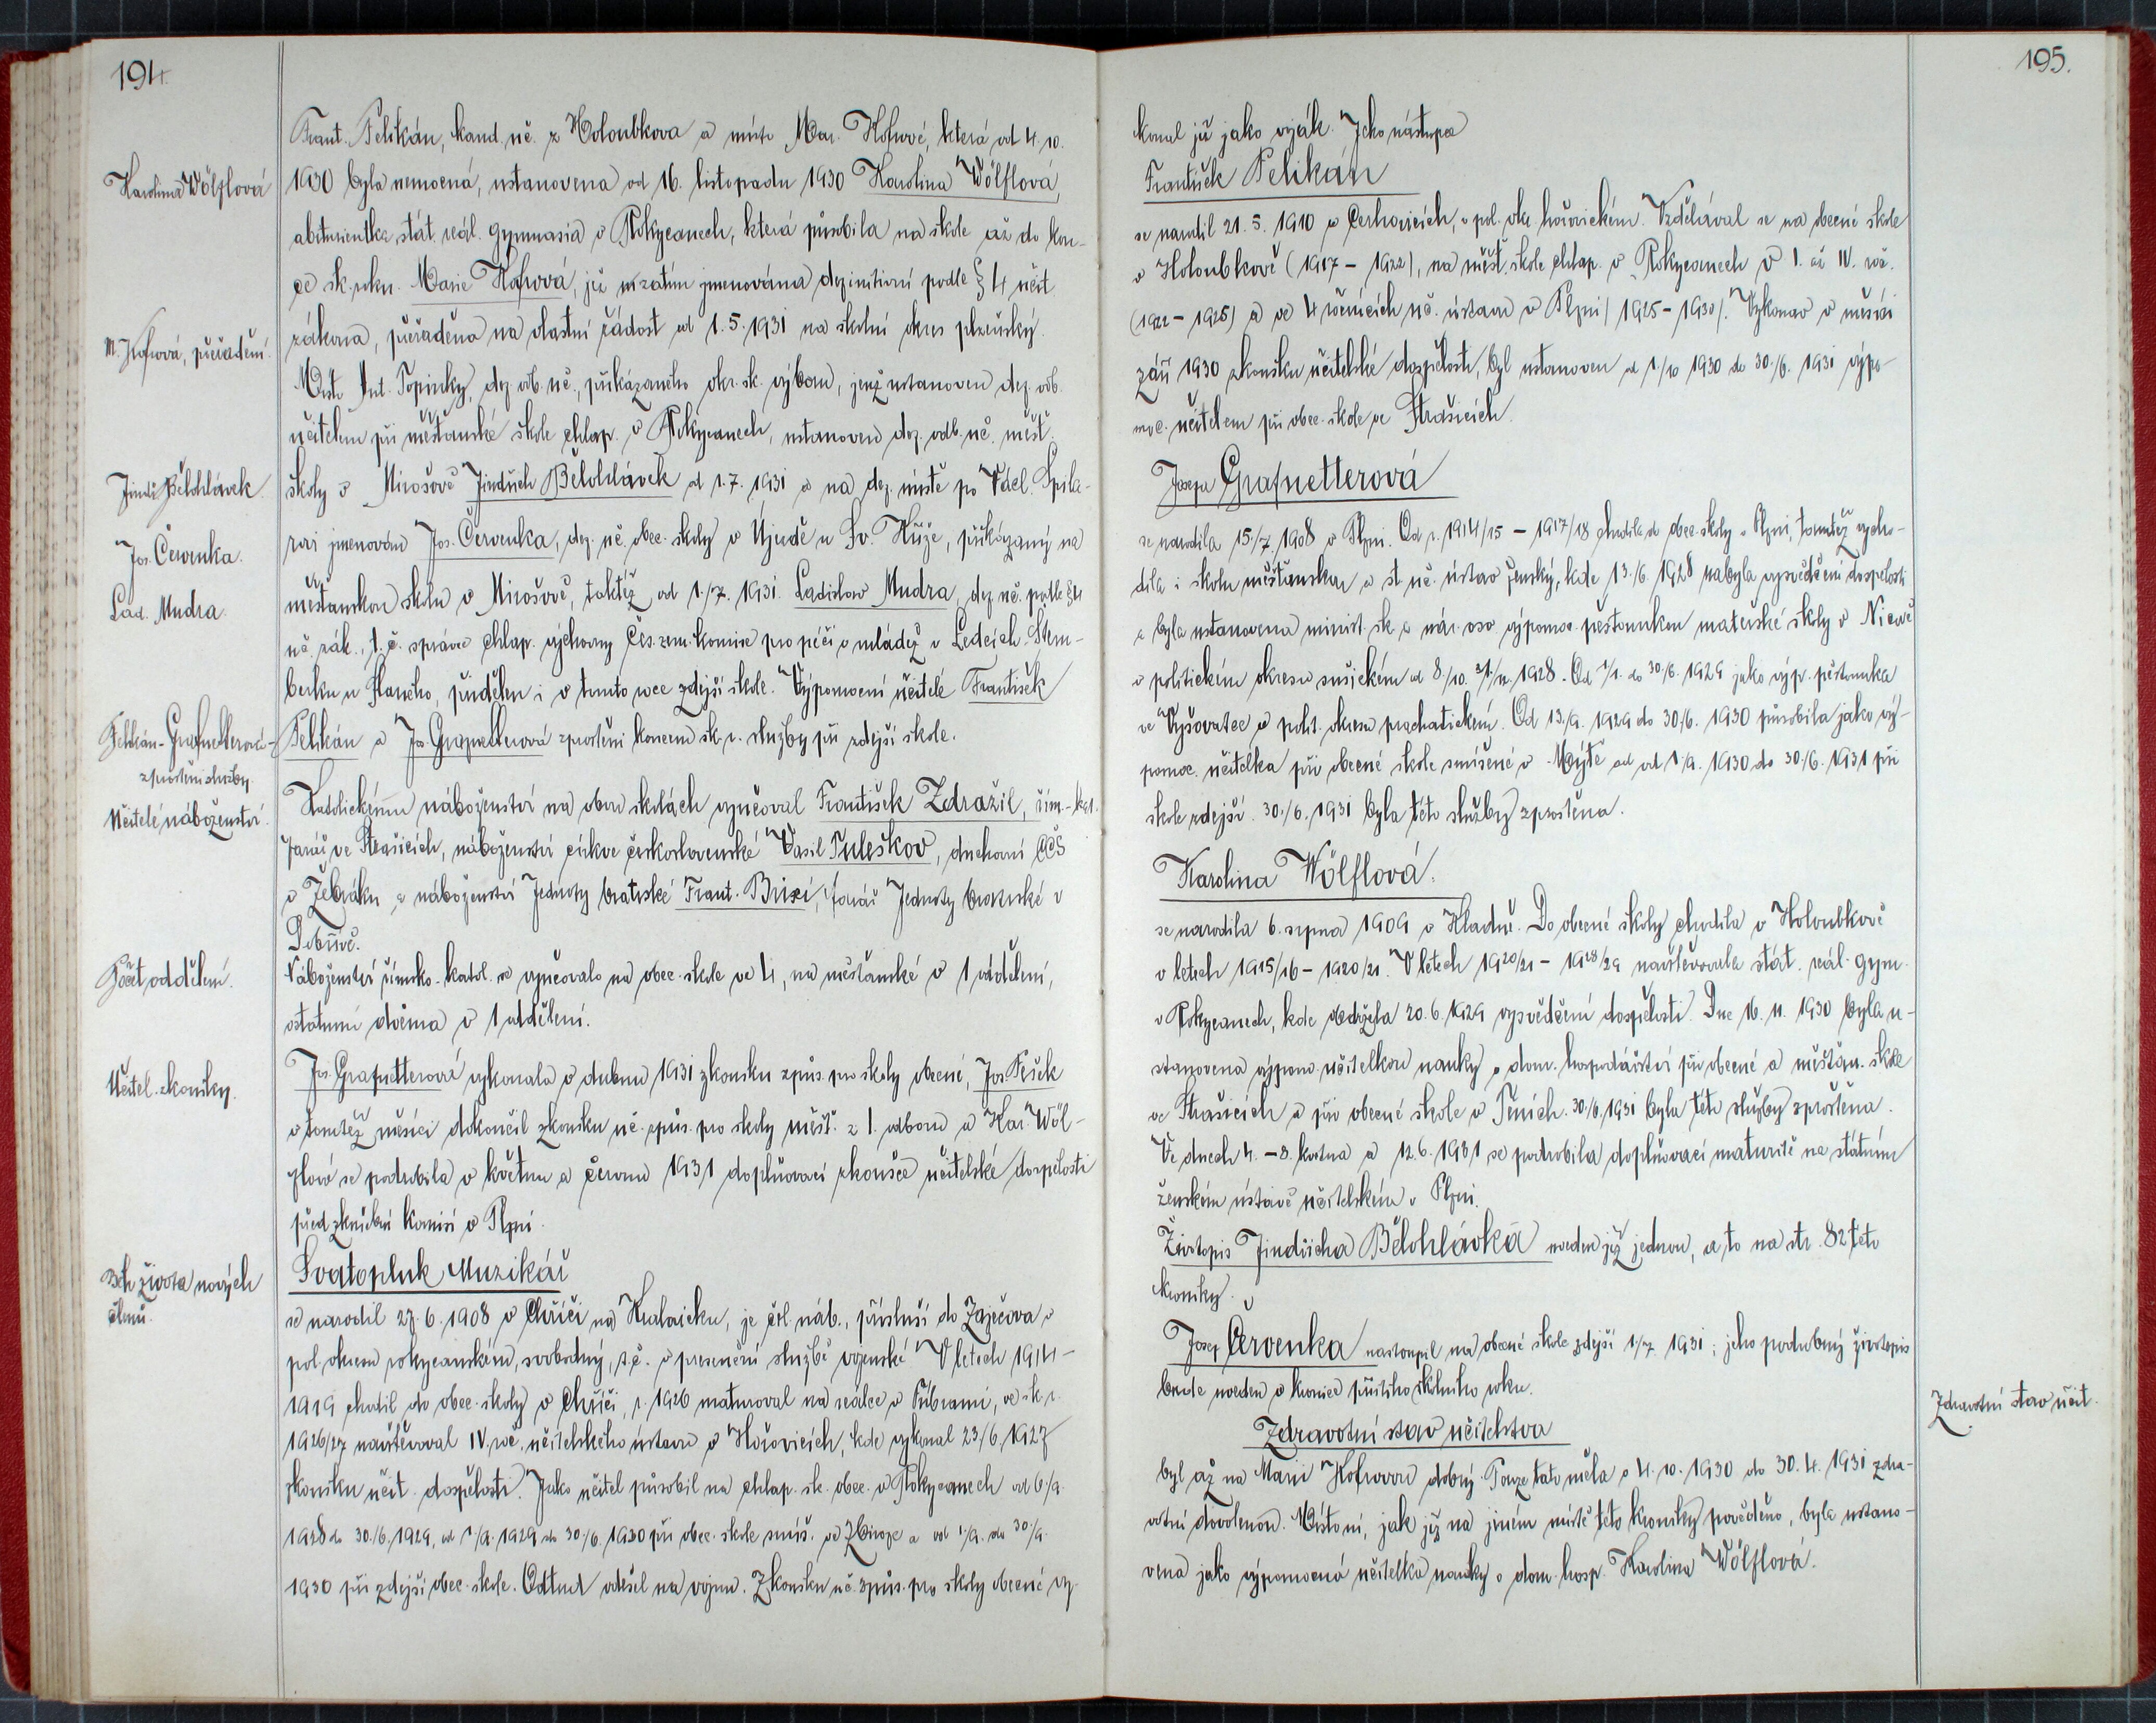 194.
Frant. Pelikán, kand. uč. z Holoubkova a místo Mar. Hofrové, která od 4. 10.
Karolina Wölflová
1930 byla nemocná, ustanovena od 16. listopadu 1930 Karolina Wölflová,
abiturientka stát. reál. gymnasia v Rokycanech, která působila na škole až do kon-
ce šk. roku. Marie Hofrová, již mezatím jmenována definitivní podle § 4 učit.
M. Hofrová, přeřadění.
zákona, přeřaděna na vlastní žádost od 1. 5. 1931 na školní okres plzeňský.
Místo Ant. Topinky, def. odb. uč., přikázaného okr. šk. výborem, jenž ustanoven def. odb.
učitelem při měšťanské škole chlap. v Rokycanech, ustanoven def. odb. uč. měšť.
Jindř. Bělohlávek
školy v Mirošově Jindřich Bělohlávek od 1. 7. 1931 a na def. místě po Václ. Špila-
Jos. Červenka.
rovi jmenován Jos. Červenka, def. uč. obec. školy v Újezdě u Sv. Kříže, přikázaný na
Lad. Mudra.
měšťanskou školu v Mirošově, taktéž od 1./7. 1931. Ladislav Mudra, def. uč. podle § 4
uč. zák., t. č. správce chlap. výchovny Čes. zem. komise pro péči o mládež v Ledcích-Štern-
berku u Slaného, přidělen i v tomto roce zdejší škole. Výpomocní učitelé František
Pelikán-Grafnetterová-
zproštění služby.
Pelikán a Jos. Grafnetterová zproštěni koncem šk. r. služby při zdejší škole.
Učitelé náboženství.
Katolickému náboženství na obou školách vyučoval František Zdražil, řím.-kat.
farář ve Strašicích, náboženství církve československé Vasil Tuleškov, duchovní CČS
v Žebráku a náboženství Jednoty bratrské Frant. Brixi, farář Jednoty bratrské v
Dobřívě.
Počet oddělení.
Náboženství římsko-katol. se vyučovalo na obec. škole ve 4, na měšťanské v 1 oddělení,
ostatními dvěma v 1 oddělení.
Učitel. zkoušky.
Jos. Grafnetterová vykonala v dubnu 1931 zkoušku způs. pro školy obecné, Jos. Pešek
v tomtéž měsíci dokončil zkoušku uč. způs. pro školy měšť. z I. odboru a Kar. Wöl-
flová se podrobila v květnu a červnu 1931 doplňovací zkoušce učitelské dospělosti
před zkušební komisí v Plzni.
Běh života nových
členů.
Svatopluk Muzikář
se narodil 27. 6. 1908 v Chříči na Kralovicku, je čsl. náb., přísluší do Zaječova v
pol. okresu rokycanském, svobodný, t. č. v presenční službě vojenské. V letech 1914-
1919 chodil do obec. školy v Chříči, r. 1926 maturoval na reálce v Příbrami, ve šk. r.
1926/27 navštěvoval IV. roč. učitelského ústavu v Hořovicích, kde vykonal 23/6. 1927
zkoušku učit. dospělosti. Jako učitel působil na chlap. šk. obec. v Rokycanech od 6./9.
1928 do 30./6. 1929, od 1./9. 1929 do 30./6. 1930 při obec. škole smíš. ve Zbiroze a od 1./9. do 30./9.
1930 při zdejší obec. škole. Odtud odešel na vojnu. Zkoušku uč. způs. pro školy obecné vy-
195.
konal již jako voják. Jeho nástupce
František Pelikán
se narodil 21. 5. 1910 v Cerhovicích, v pol. okr. hořovickém. Vzdělával se na obecné škole
v Holoubkově (1917-1922), na měšť. škole chlap. v Rokycanech v I. až IV. roč.
(1922-1925) a ve 4 ročnících uč. ústavu v Plzni (1925-1930). Vykonav v měsíci
září 1930 zkoušku učitelské dospělosti, byl ustanoven od 1./10 1930 do 30./6. 1931 výpo-
moc. učitelem při obec. škole ve Strašicích.
Josefa Grafnetterová
se narodila 15./7. 1908 v Plzni. Od r. 1914/15 - 1917/18 chodila do obec. školy v Plzni, tamtéž vycho-
dila i školu měšťanskou a st. uč. ústav ženský, kde 13./6. 1928 nabyla vysvědčení dospělosti
a byla ustanovena minist. šk. a nár. osv. výpomoc. pěstounkou mateřské školy v Nicově
v politickém okresu sušickém od 8./10. 31./12. 1928. Od 1/1. do 30./6. 1929 jako výp. pěstounka
ve Vyšovatce v polit. okresu prachatickém. Od 13./9. 1929 do 30./6. 1930 působila jako vý-
pomoc. učitelka při obecné škole smíšené v Mýtě a od 1./9. 1930 do 30./6. 1931 při
škole zdejší. 30./6. 1931 byla této služby zproštěna.
Karolina Wölflová.
se narodila 6. srpna 1909 v Kladně. Do obecné školy chodila v Holoubkově
v letech 1915/16 - 1920/21. V letech 1920/21 - 1928/29 navštěvovala stát. reál. gym.
v Rokycanech, kde obdržela 20. 6. 1929 vysvědčení dospělosti. Dne 16. 11. 1930 byla u-
stanovena výpomoc. učitelkou nauky o dom. hospodářství při obecné a měšťan. škole
ve Strašicích a při obecné škole v Těních. 30./6. 1931 byla této služby zproštěna.
Ve dnech 4. - 8. května a 12. 6. 1931 se podrobila doplňovací maturitě na státním
ženském ústavě učitelském v Plzni.
Životopis Jindřicha Bělohlávka uveden již jednou, a to na str. 82 této
kroniky.
Josef Červenka nastoupil na obecné škole zdejší 1./7. 1931; jeho podrobný životopis
bude uveden v kronice příštího školního roku.
Zdravotní stav učit.
Zdravotní stav učitelstva
byl až na Marii Hofrovou dobrý. Pouze tato měla o 4. 10. 1930 do 30. 4. 1931 zdra-
votní dovolenou. Místo ní, jak již na jiném místě této kroniky pověděno, byla ustano-
vena jako výpomocná učitelka nauky o dom. hosp. Karolina Wölflová.